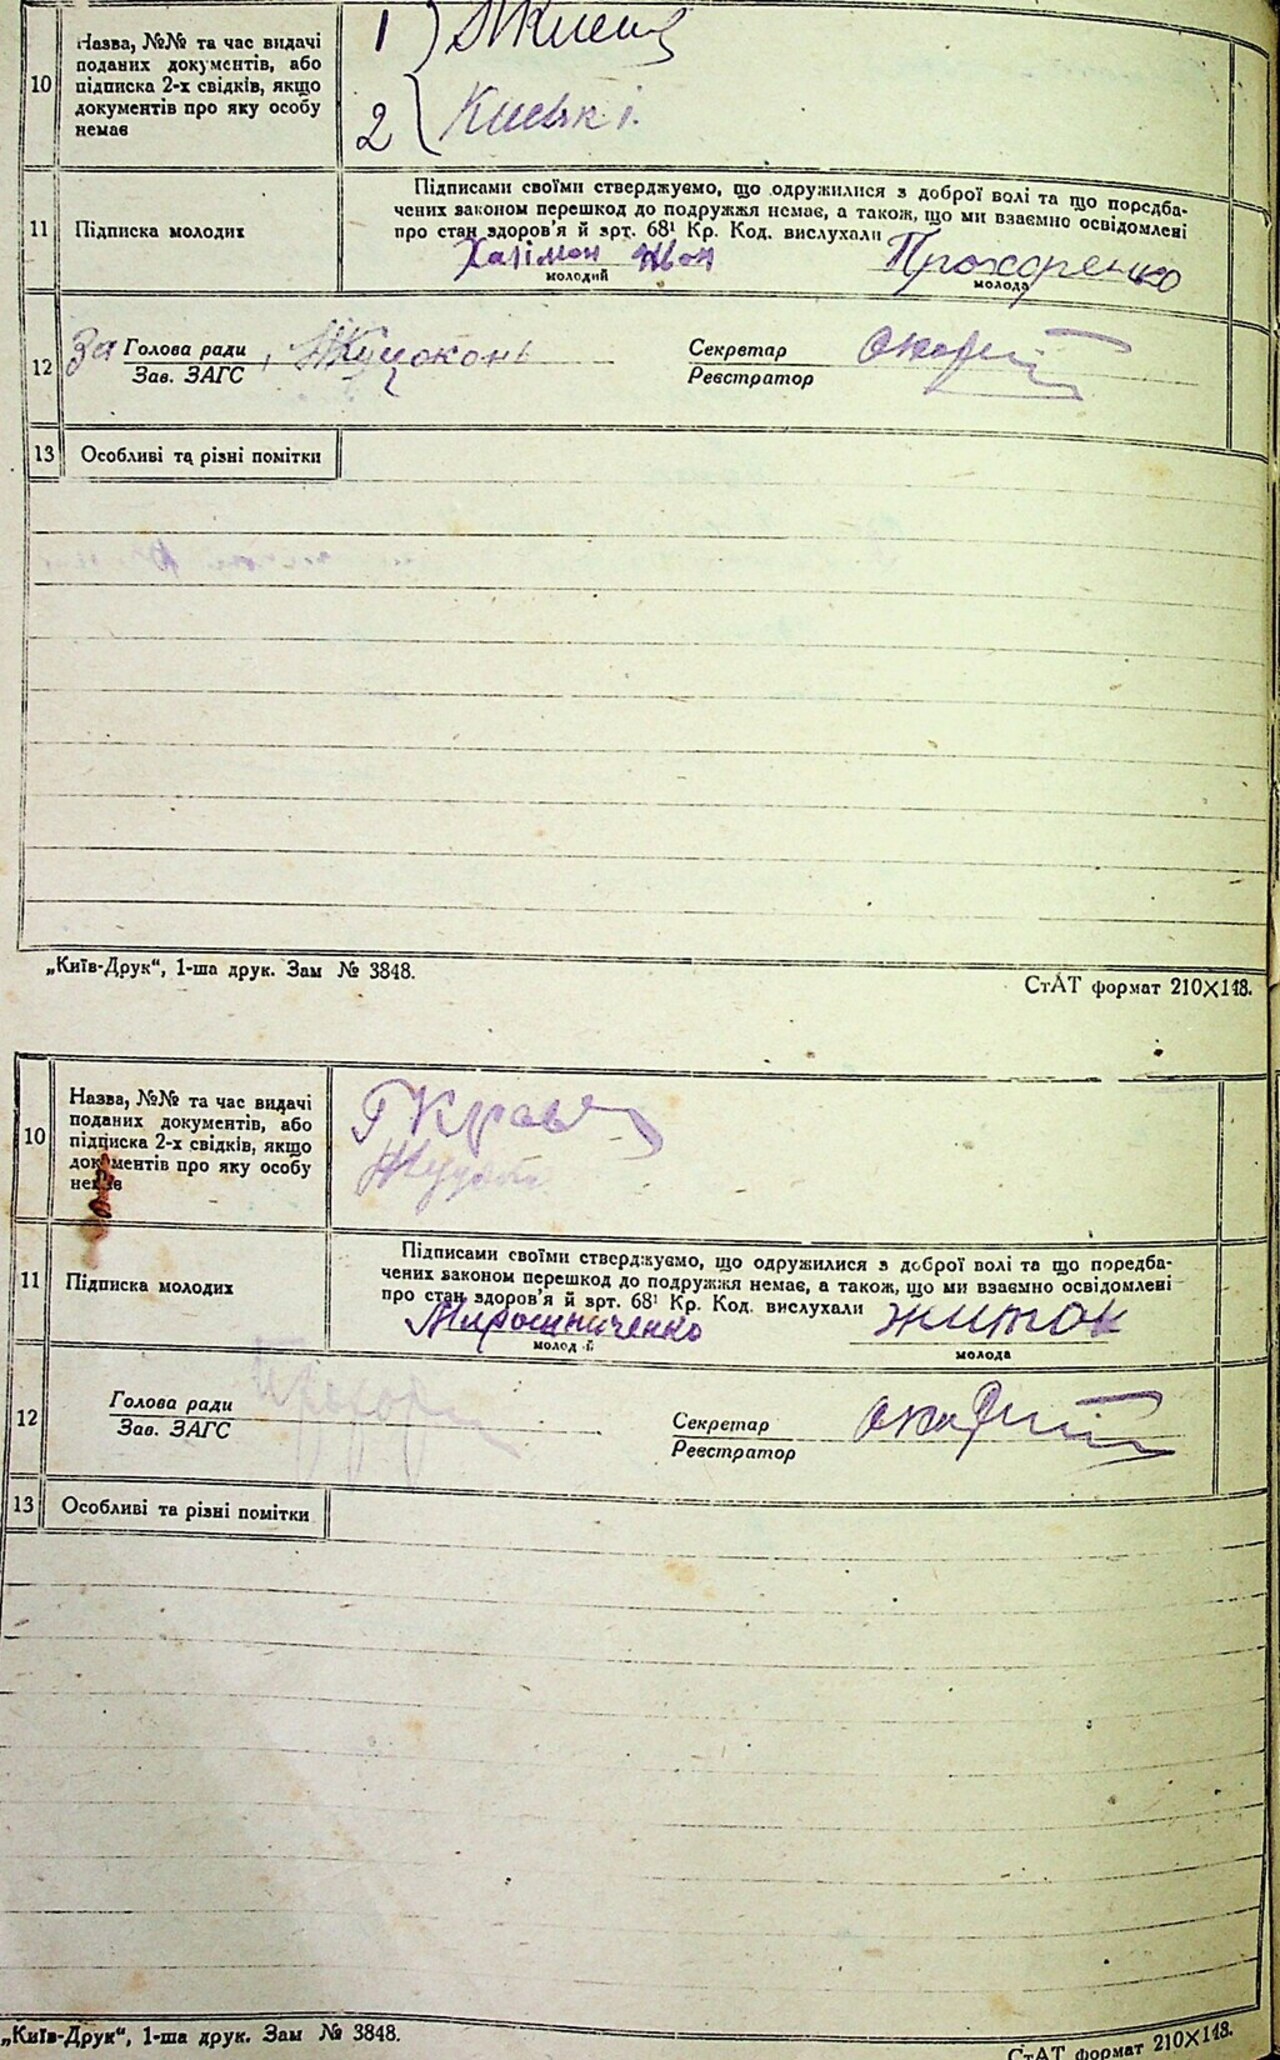 10 Назва, №№ та час видачі
поданих документів, або
підписка 2-х свідків, якщо
документів про яку особу
немає
1)
2
11 Підписка молодих
Підписами своїми стверджуємо, що одружилися з доброї волі та що передба-
чених законом перешкод до подружжя немає, а також, що ми взаємно освідомлені
про стан здоров'я й арт. 68¹ Кр. Код. вислухали
Халімон Іван Прохоренко
молодий молода
12 За Голова ради
Зав. ЗАГС
Куцоконь
Секретар
Реєстратор
13 Особливі та різні помітки
„Київ-Друк“, 1-ша друк. Зам № 3848.
СтАТ формат 210×148.
10 Назва, №№ та час видачі
поданих документів, або
підписка 2-х свідків, якщо
документів про яку особу
немає
11 Підписка молодих
Підписами своїми стверджуємо, що одружилися з доброї волі та що передба-
чених законом перешкод до подружжя немає, а також, що ми взаємно освідомлені
про стан здоров'я й арт. 68¹ Кр. Код. вислухали
Мирошниченко Житок
молодий молода
12 Голова ради
Зав. ЗАГС
Секретар
Реєстратор
13 Особливі та різні помітки
„Київ-Друк“, 1-ша друк. Зам № 3848.
СтАТ формат 210×148.